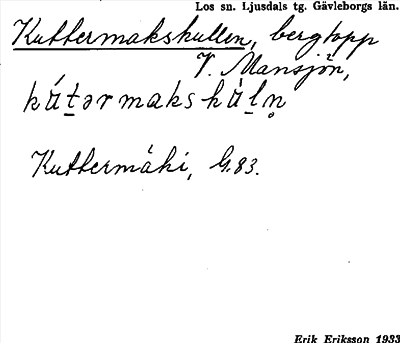 Los sn. Ljusdals tg. Gävleborgs län.
Kuttermakskullen, bergtopp
V. Mansjön,
Kuttermäki, G.83.
Erik Eriksson 1933